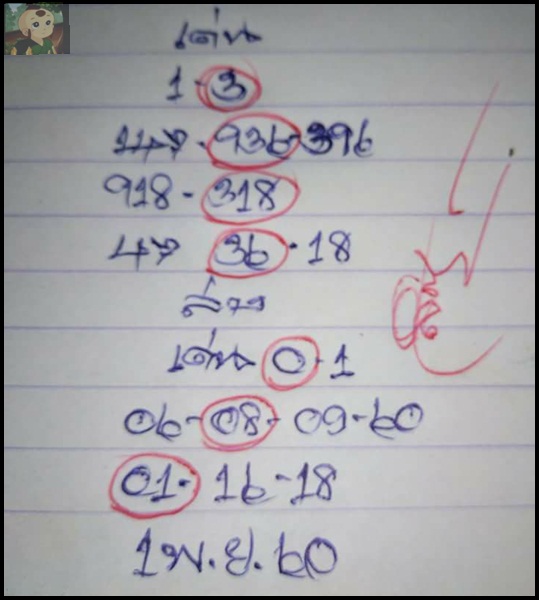 เด่น
1-3
147-936-396
918-318
47 36-18
ล่าง
เด่น 0-1
06-08-09-60
01-16-18
1พ.ย.60